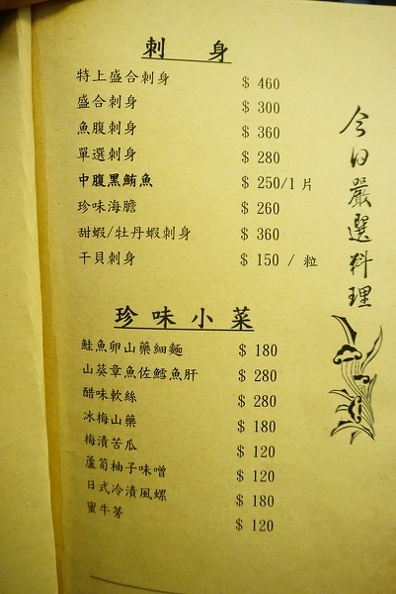 刺 身
特上盛合刺身 $ 460
盛合刺身 $ 300
魚腹刺身 $ 360
單選刺身 $ 280
中腹黑鮪魚 $ 250/1 片
珍味海膽 $ 260
甜蝦/牡丹蝦刺身 $ 360
干貝刺身 $ 150 / 粒
珍 味 小 菜
鮭魚卵山藥細麵 $ 180
山葵章魚佐鱈魚肝 $ 280
醋味軟絲 $ 280
冰梅山藥 $ 180
梅漬苦瓜 $ 120
蘆筍柚子味噌 $ 120
日式冷漬風螺 $ 180
蜜牛蒡 $ 120
今日嚴選料理